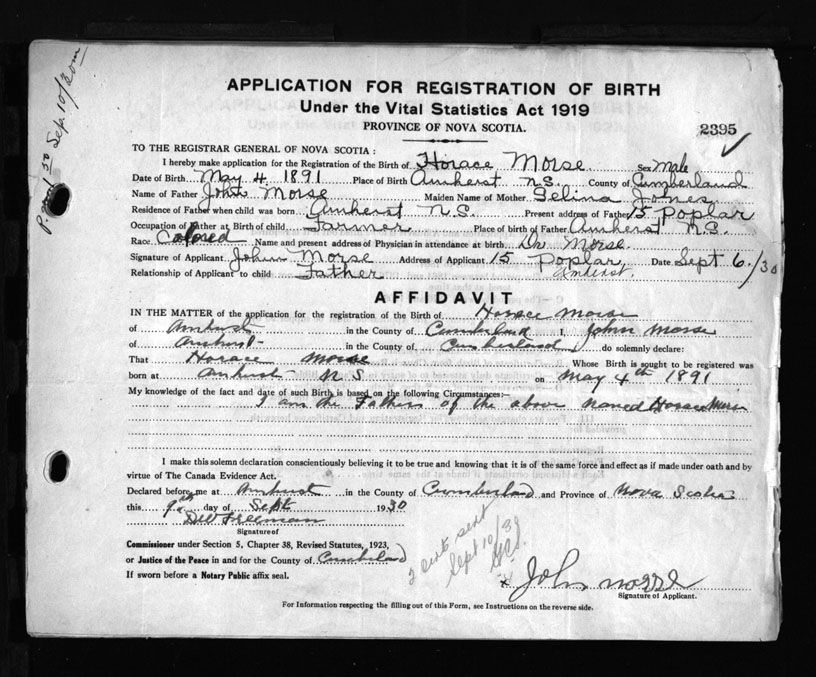 Sep. 10/30
APPLICATION FOR REGISTRATION OF BIRTH
Under the Vital Statistics Act 1919
PROVINCE OF NOVA SCOTIA.
2395
TO THE REGISTRAR GENERAL OF NOVA SCOTIA :
I hereby make application for the Registration of the Birth of Horace Morse Sex Male
Date of Birth May 4 1891 Place of Birth Amherst N.S. County of Cumberland
Name of Father John Morse Maiden Name of Mother Selina Jones
Residence of Father when child was born Amherst N.S. Present address of Father 15 Poplar
Occupation of Father at Birth of child Farmer Place of birth of Father Amherst N.S.
Race Colored Name and present address of Physician in attendance at birth Dr Morse.
Signature of Applicant John Morse Address of Applicant 15 Poplar, Date Sept 6/30
Relationship of Applicant to child Father Amherst.
AFFIDAVIT
IN THE MATTER of the application for the registration of the Birth of Horace Morse
of Amherst in the County of Cumberland I, John Morse
of Amherst in the County of Cumberland do solemnly declare:
That Horace Morse Whose Birth is sought to be registered was
born at Amherst N S on May 4th 1891
My knowledge of the fact and date of such Birth is based on the following Circumstances:-
I am the Father of the above named Horace Morse
I make this solemn declaration conscientiously believing it to be true and knowing that it is of the same force and effect as if made under oath and by
virtue of The Canada Evidence Act.
Declared before me at Amherst in the County of Cumberland and Province of Nova Scotia
this 9th day of Sept 1930
Freeman
Signature of
Commissioner under Section 5, Chapter 38, Revised Statutes, 1923,
or Justice of the Peace in and for the County of Cumberland
If sworn before a Notary Public affix seal.
2 certs sent
Sept 10/30
x John Morse
Signature of Applicant.
For Information respecting the filling out of this Form, see Instructions on the reverse side.